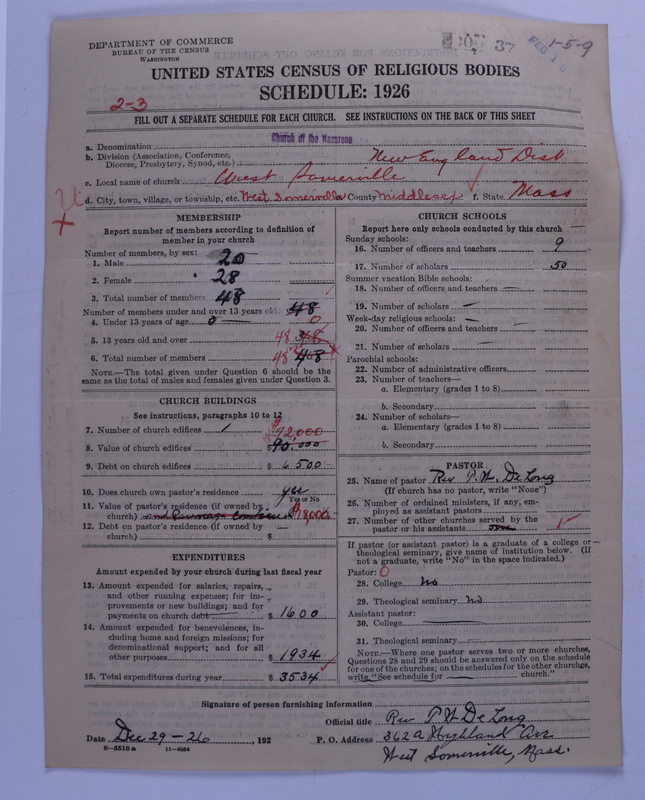 DEPARTMENT OF COMMERCE
BUREAU OF THE CENSUS
WASHINGTON
37
FEB
1-5-9
UNITED STATES CENSUS OF RELIGIOUS BODIES
SCHEDULE: 1926
2-3
FILL OUT A SEPARATE SCHEDULE FOR EACH CHURCH. SEE INSTRUCTIONS ON THE BACK OF THIS SHEET
a. Denomination Church of the Nazarene
b. Division (Association, Conference, Diocese, Presbytery, Synod, etc.) New England Dist
c. Local name of church West Somerville
d. City, town, village, or township, etc. West Somerville County Middlesex f. State Mass
MEMBERSHIP
Report number of members according to definition of
member in your church
Number of members, by sex:
1. Male 20
2. Female 28
3. Total number of members 48
Number of members under and over 13 years old: 48
4. Under 13 years of age 0 0
5. 13 years old and over 48 48
6. Total number of members 48 48
NOTE.—The total given under Question 6 should be the
same as the total of males and females given under Question 3.
CHURCH BUILDINGS
See instructions, paragraphs 10 to 12
7. Number of church edifices 1
$72,000
8. Value of church edifices $ 90,000
9. Debt on church edifices $ 6500
10. Does church own pastor's residence yes
Yes or No
11. Value of pastor's residence (if owned by
church) and Parsonage Combined $18,000
12. Debt on pastor's residence (if owned by
church) — $
EXPENDITURES
Amount expended by your church during last fiscal year
13. Amount expended for salaries, repairs,
and other running expenses; for im-
provements or new buildings; and for
payments on church debt $ 1600
14. Amount expended for benevolences, in-
cluding home and foreign missions; for
denominational support; and for all
other purposes $ 1934
15. Total expenditures during year $ 3534
CHURCH SCHOOLS
Report here only schools conducted by this church —
Sunday schools:
16. Number of officers and teachers 9
17. Number of scholars 50
Summer vacation Bible schools:
18. Number of officers and teachers —
19. Number of scholars —
Week-day religious schools: —
20. Number of officers and teachers —
21. Number of scholars —
Parochial schools:
22. Number of administrative officers
23. Number of teachers—
a. Elementary (grades 1 to 8)
b. Secondary
24. Number of scholars—
a. Elementary (grades 1 to 8)
b. Secondary
PASTOR
25. Name of pastor Rev P. W. DeLong
(If church has no pastor, write "None")
26. Number of ordained ministers, if any, em-
ployed as assistant pastors
27. Number of other churches served by the
pastor or his assistants one 1
If pastor (or assistant pastor) is a graduate of a college or
theological seminary, give name of institution below. (If
not a graduate, write "No" in the space indicated.)
Pastor: 0
28. College No
29. Theological seminary No
Assistant pastor:
30. College
31. Theological seminary
NOTE.—Where one pastor serves two or more churches,
Questions 28 and 29 should be answered only on the schedule
for one of the churches; on the schedules for the other churches,
write "See schedule for —— church."
Signature of person furnishing information
Official title Rev P W DeLong
Date Dec 29-26, 192 P. O. Address 362a Highland Av
West Somerville, Mass.
8-5518a 11-9024